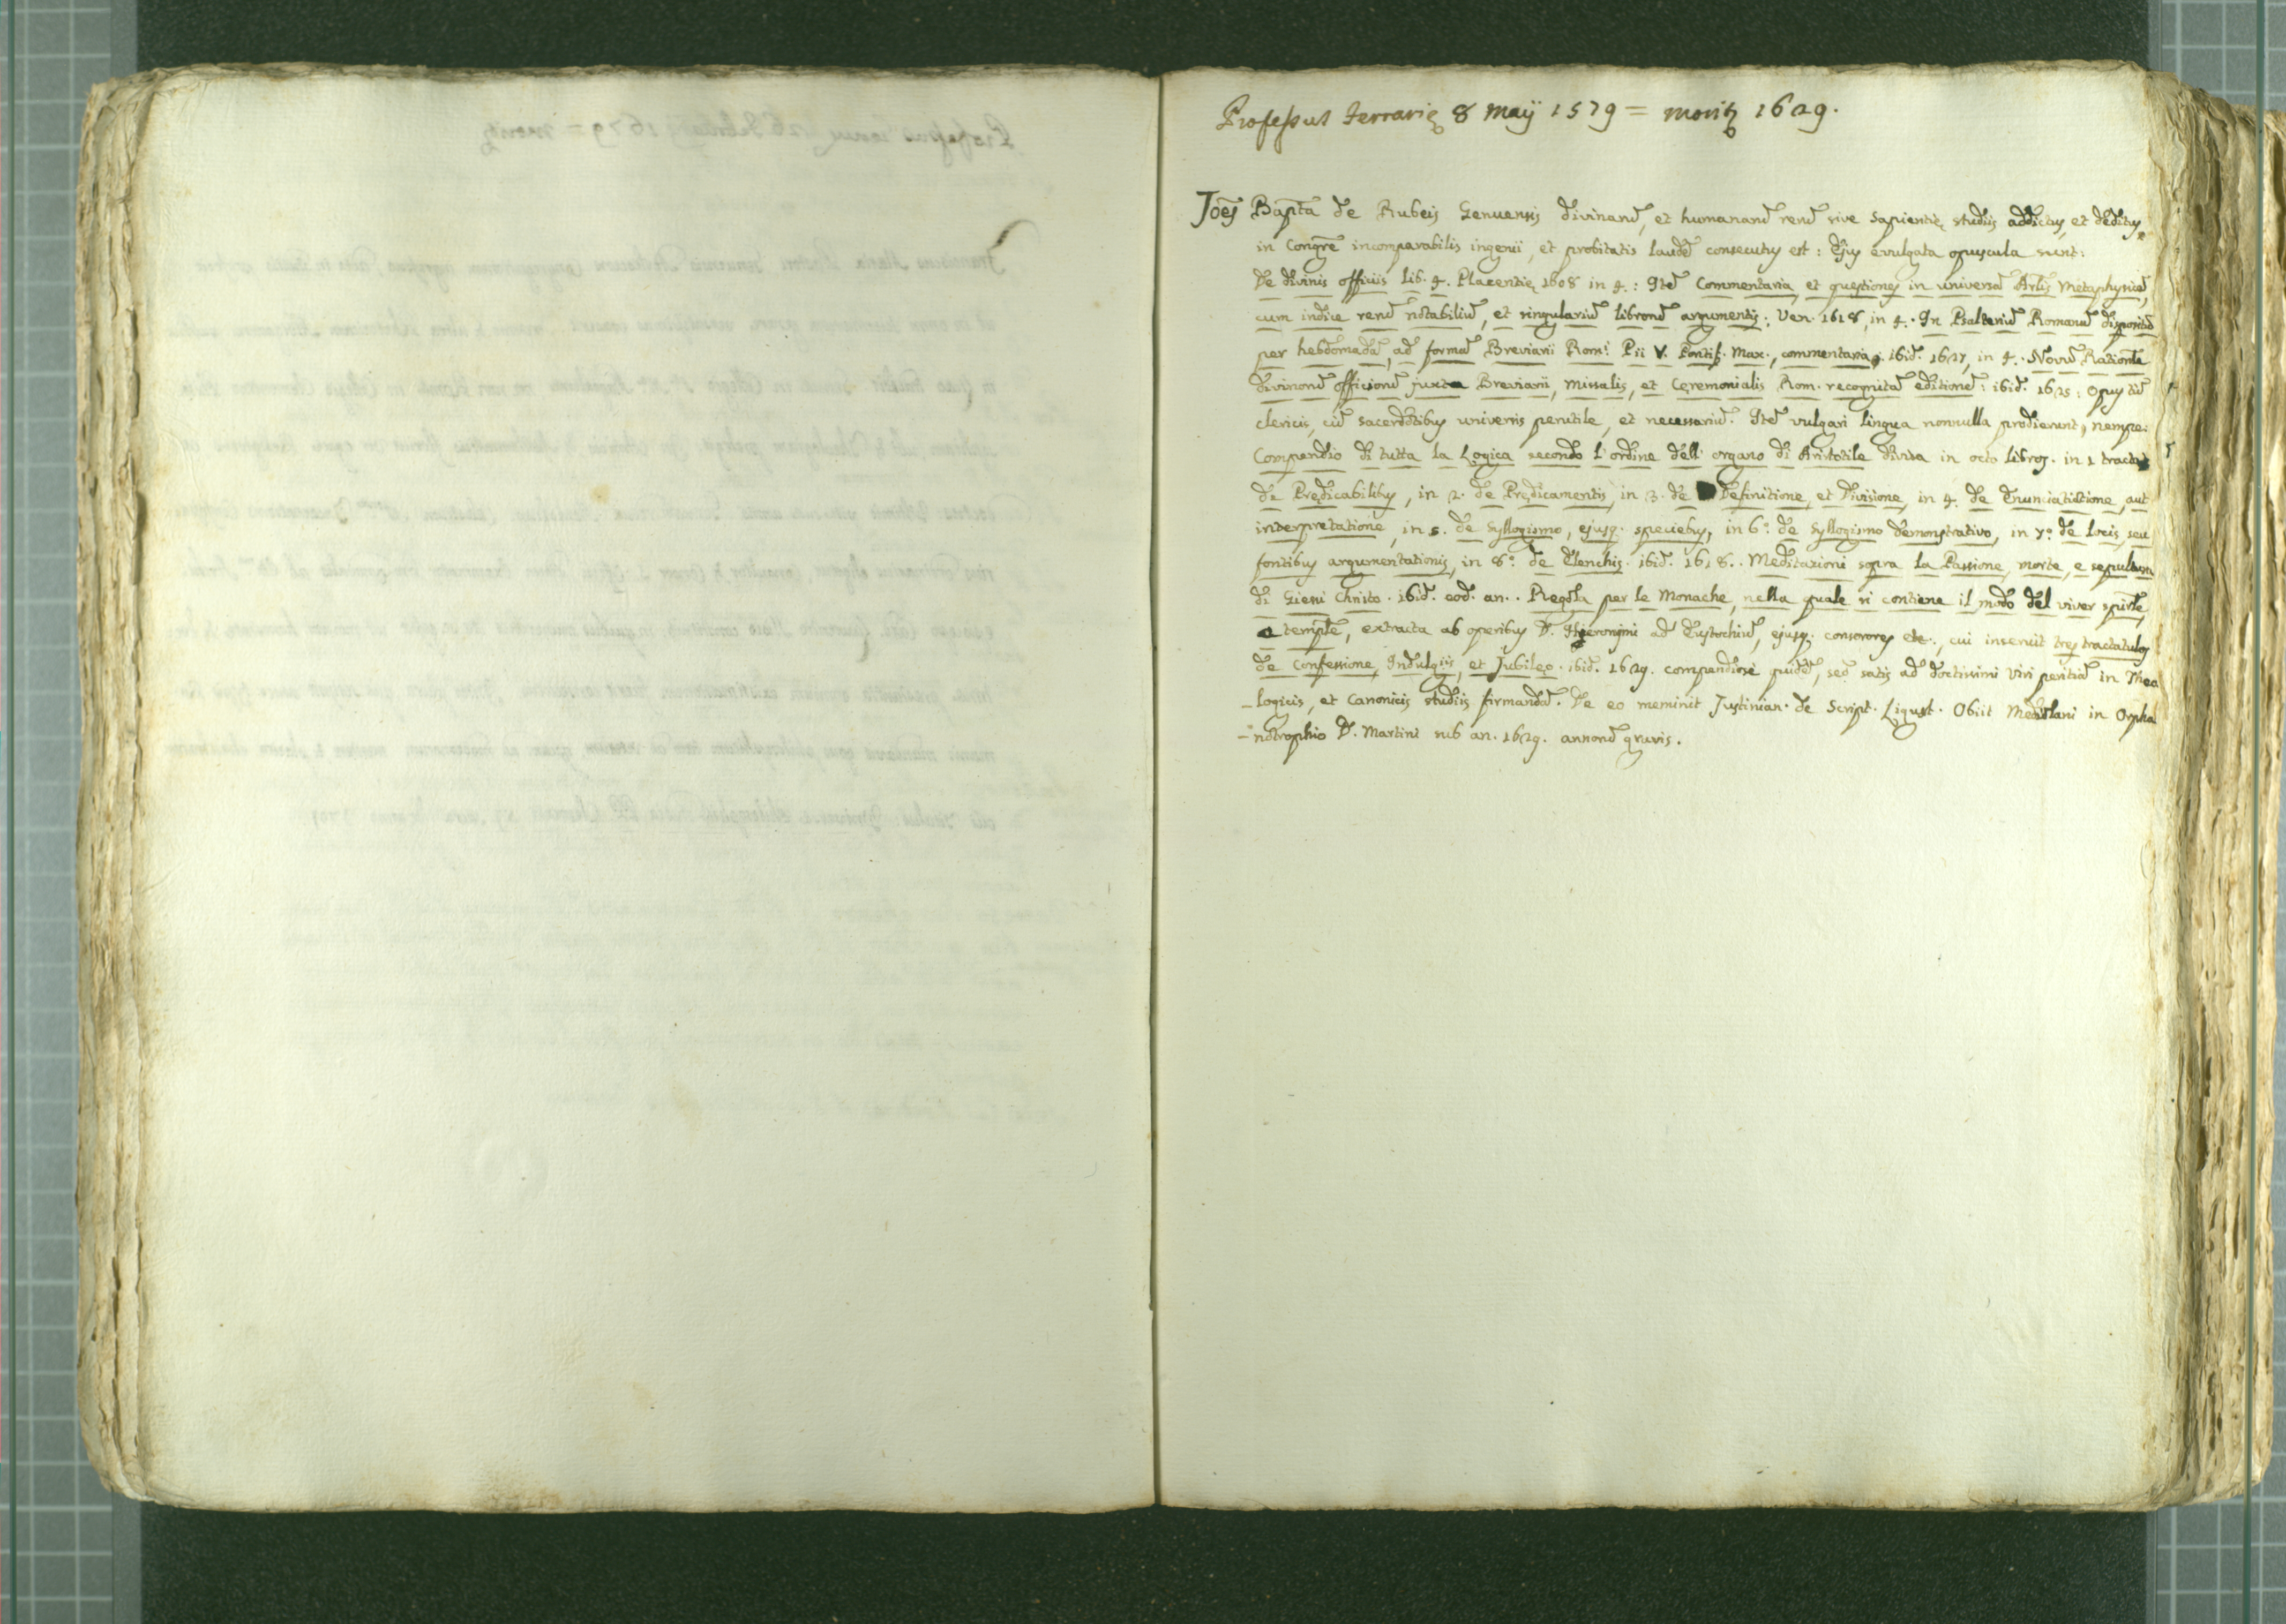 Professus Ferrarię 8 Maij 1579 = moritȝ 1629.
Joẽs Bapt̃a de Rubeis Genuensis divinarũ, et humanarũ rerũ sive sapientię studiis addictus, et deditus,
in Congrẽ incomparabilis ingenii, et probitatis laudẽ consecutus est: Ejus evulgata opuscula sunt:
De divinis officiis lib. 4. Placentię 1608 in 4.: Itẽ Commentaria, et quęstiones in universã Arlis Metaphysicã,
cum indice rerũ notabiliũ, et singulariũ librorũ argumentis: Ven. 1618, in 4. In Psalteriũ Romanũ dispositũ
per hebdomadã, ad formã Breviarii Rom.i Pii V. Pontif. Max., commentaria, ibid. 1627, in 4. Novũ Rationle
divinorũ officiorũ juxta Breviarii, Missalis, et Cęremonialis Rom. recognitã editionẽ: ibid. 1625: Opus tũ
clericis, cũ sacerdotibus universis perutile, et necessariũ. Itẽ vulgari lingua nonnulla prodierunt, nempe:
Compendio di tutta la Logica secondo l'ordine dell'organo di Aristotile divisa in octo libros. in 1 tractat
de Prędicabilibus, in 2. de Prędicamentis, in 3. de Definitione, et Divisione, in 4. de Enunciatione, aut
interpretatione, in 5. de Syllogismo, ejusq. speciebus, in 6º. de Syllogismo demonstrativo, in 7º. de Locis, seu
fontibus argumentationis, in 8º. de Elenchis. ibid. 1618.. Meditazioni sopra la Passione, morte, e sepultura
di Giesù Christo. ibid. eod. an.. Regola per le Monache, nella quale si contiene il modo del viver spirle,
e temple, extracta ab operibus D. Hieronymi ad Eustochiũ, ejusq. consorores etc., cui inseruit tres tractatulos
de Confessione, Indulgiis, et Jubileo. ibid. 1629. compendiose quidẽ, sed satis ad doctissimi viri peritiã in Theo
-logicis, et Canonicis studiis firmandã. De eo meminit Justinian. de Script. Ligust. Obiit Mediolani in Orpha
-notrophio D. Martini sub an. 1629. annorũ gravis.